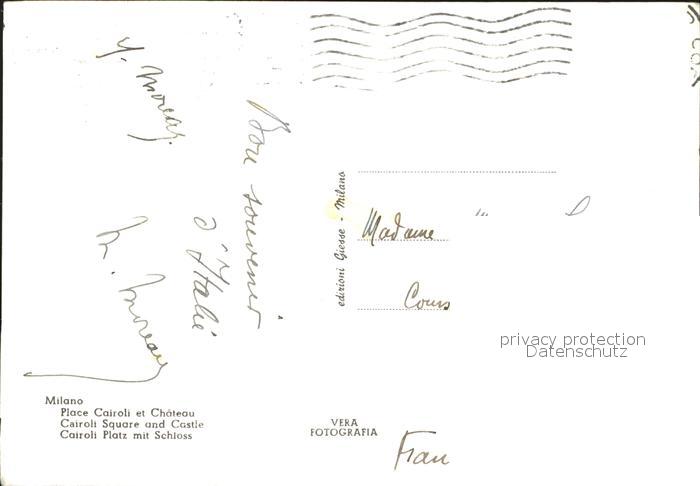 Bon souvenir
d'Italie
Y. Moreau
M. Moreau
Milano
Place Cairoli et Château
Cairoli Square and Castle
Cairoli Platz mit Schloss
edizioni Giesse - Milano
VERA
FOTOGRAFIA
Madame
Cours
Fran
privacy protection
Datenschutz